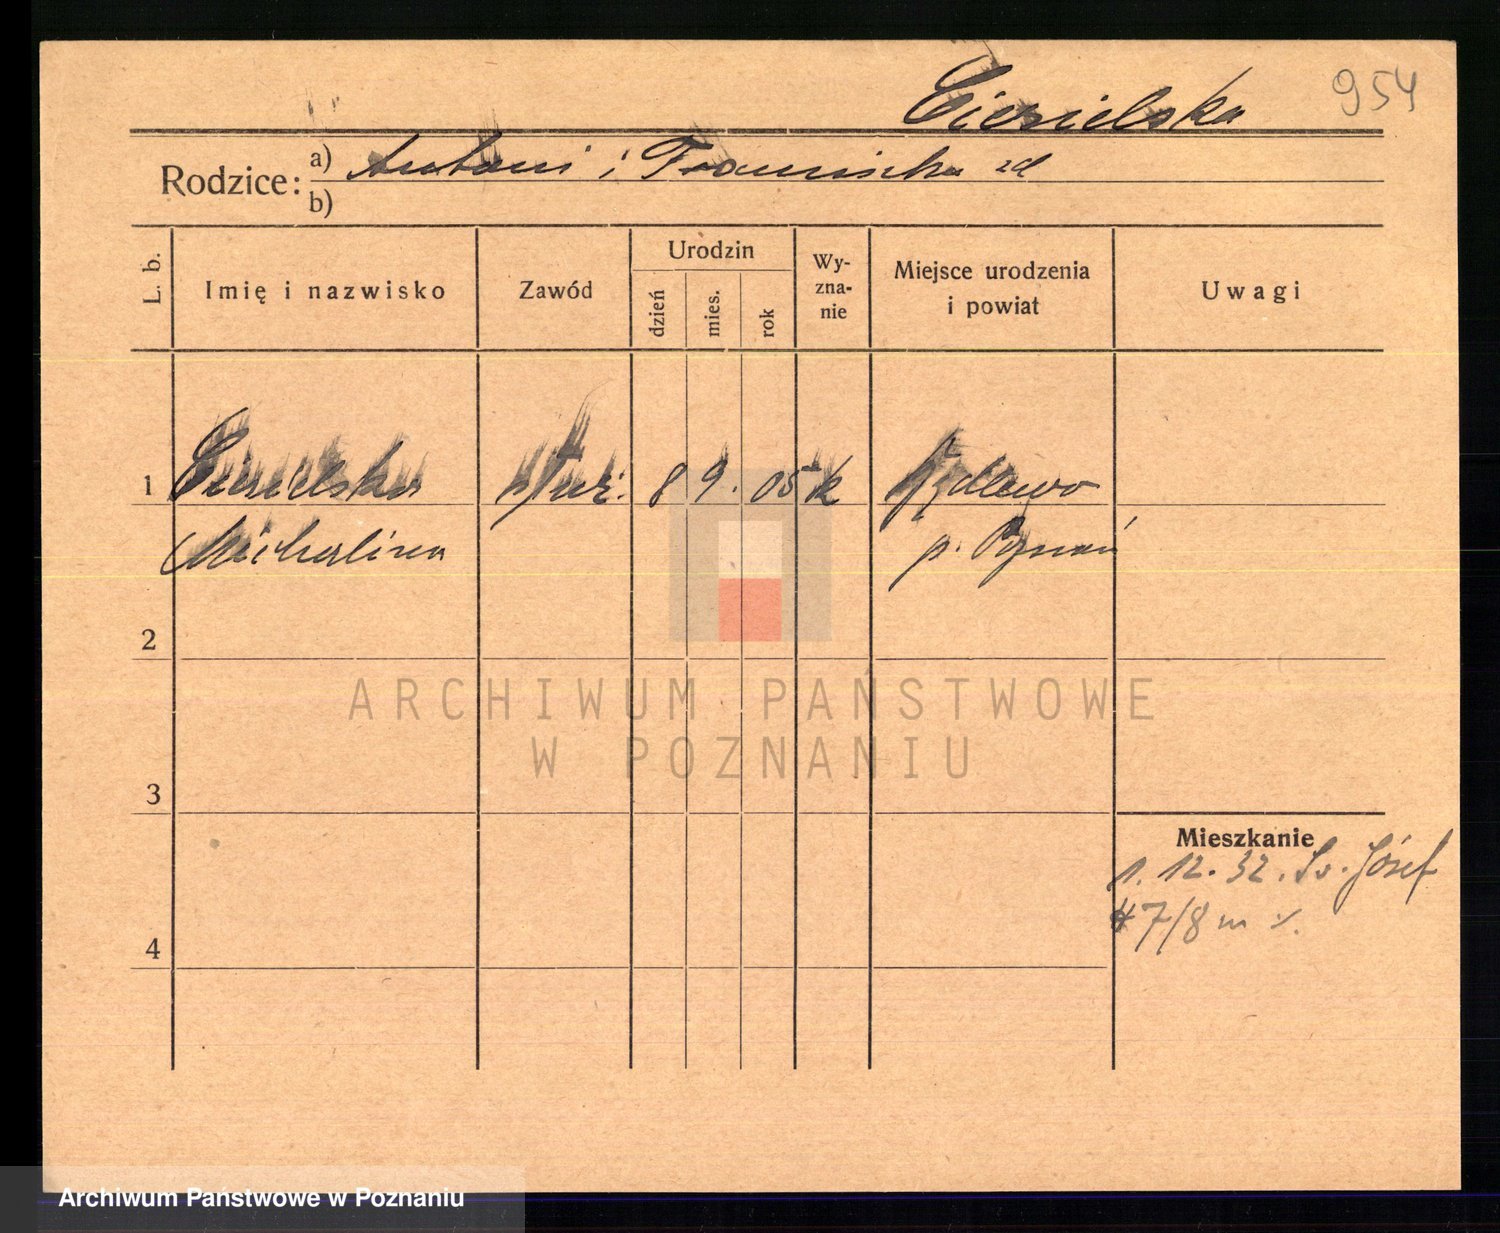 Ciesielska 954
Rodzice: a) Antoni i Franciszka zd
b)
L. b. Imię i nazwisko Zawód Urodzin dzień mies. rok Wy-zna-nie Miejsce urodzenia i powiat Uwagi
1 Ciesielska służ. 8 9. 05 k
Michalina p. Poznań
2
3
Mieszkanie
1. 12. 32. Św. Józef
7/8 m
4
ARCHIWUM PAŃSTWOWE
W POZNANIU
Archiwum Państwowe w Poznaniu